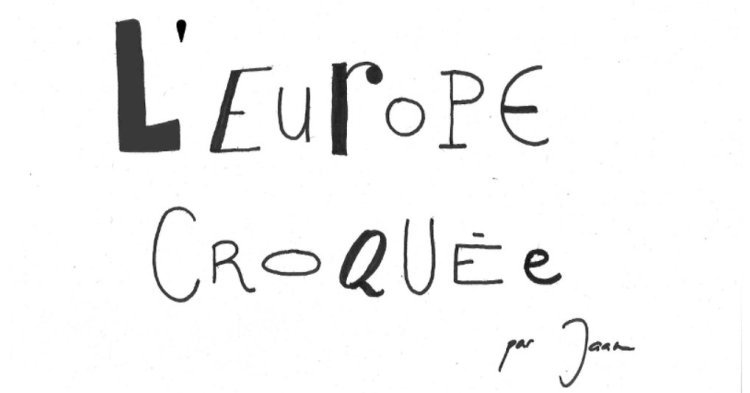 L'EuroPE
CROQUÉe
par Jaan